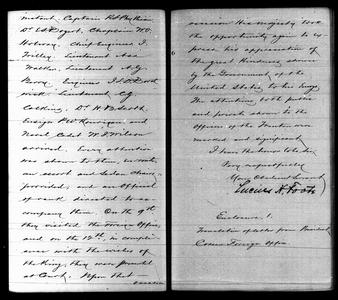 instant, Captain
Chaplain W.O.
Holway, Chief Engineer
Lieutenant
Lieutenant
Engineer
Lieutenant C.G.
Calkins, Dr. H.B. Scott,
Ensign
and Naval Cadet W.J. Wilson
arrived. Every attention
was shown to them, en route,
an escort and Sedan chairs
provided, and an Official
of rank directed to ac-
company them. On the 9th
they visited the Foreign Office,
and on the 12th, in compli-
ance with the wishes of
the King, they were presented
at Court. Upon that
occasion
occasion His Majesty took
the opportunity again to ex-
press his appreciation of
the great kindness shown
by the Government of the
United States, to his Envoys.
The attentions, both public
and private shown to the
Officers of the Trenton were
marked and significant.
I have the honor to be Sir,
Very respectfully
Your Obedient Servant
Lucius H. Foote
Enclosure 1.
Translation of letter from President
Corean Foreign Office